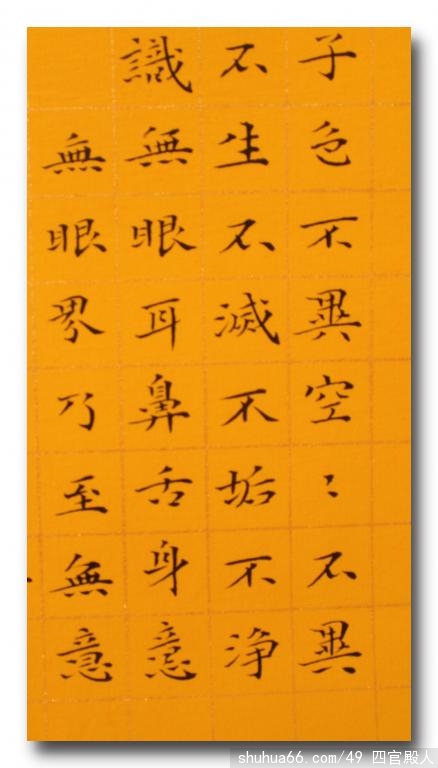 子色不異空〻不異
不生不滅不垢不淨
識無眼耳鼻舌身意
無眼界乃至無意
shuhua66.com/49 四官殿人